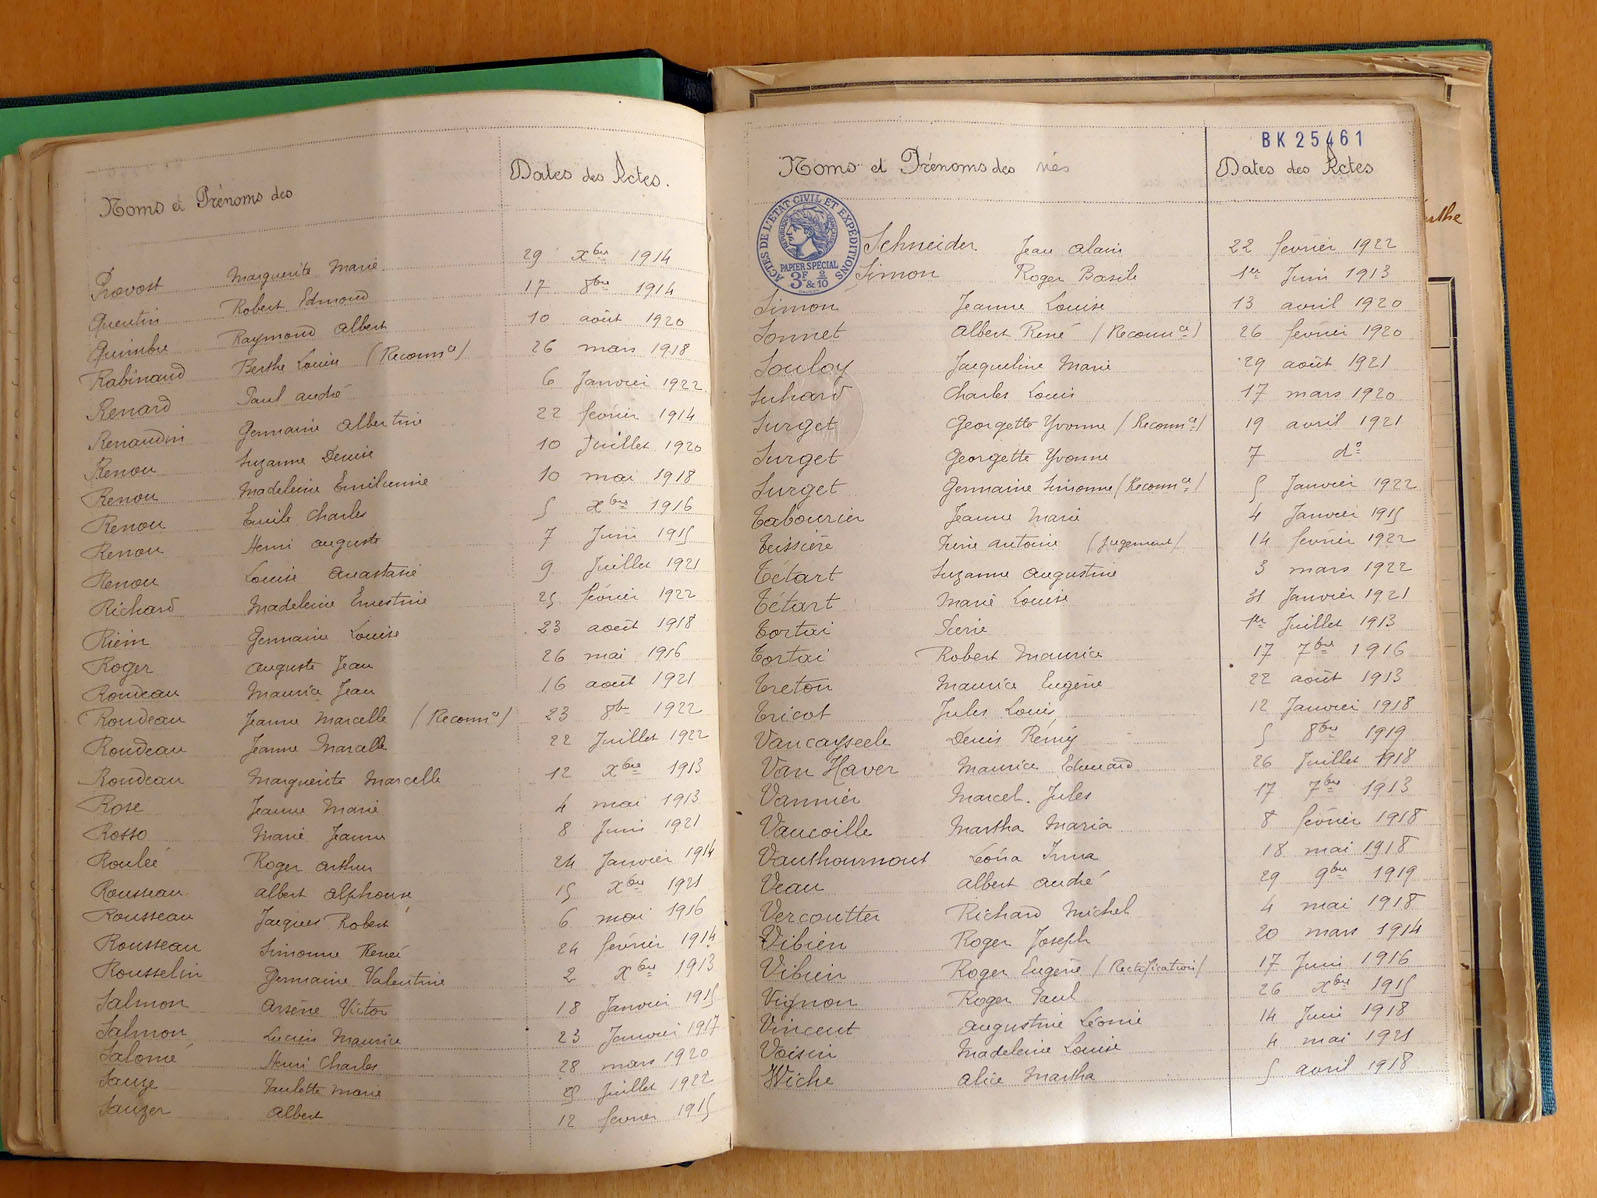 Noms et Prénoms des
Dates des Actes.
Provost Marguerite Marie 29 Xbre 1914
Quentin Robert Edmond 17 8bre 1914
Quimbre Raymond Albert 10 août 1920
Rabinaud Berthe Louise (Reconnce) 26 mars 1918
Renard Paul André 6 Janvier 1922
Renaudin Germaine Albertine 22 février 1914
Renou Suzanne Denise 10 Juillet 1920
Renou Madeleine Emilienne 10 mai 1918
Renou Emile Charles 5 Xbre 1916
Renou Henri Auguste 7 Juin 1915
Renou Louise Anastasie 9 Juillet 1921
Richard Madeleine Ernestine 25 février 1922
Riein Germaine Louise 23 août 1918
Roger Auguste Jean 26 mai 1916
Rondeau Maurice Jean 16 août 1921
Rondeau Jeanne Marcelle (Reconnce) 23 8bre 1922
Rondeau Jeanne Marcelle 22 Juillet 1922
Rondeau Marguerite Marcelle 12 Xbre 1913
Rose Jeanne Marie 4 mai 1913
Rosso Marie Jeanne 8 Juin 1921
Roulée Roger Arthur 24 Janvier 1914
Rousseau Albert Alphonse 15 Xbre 1921
Rousseau Jacques Robert 6 mai 1916
Rousseau Simonne Renée 24 février 1914
Rousselin Germaine Valentine 2 Xbre 1913
Salmon Arsène Victor 18 Janvier 1915
Salmon Lucien Maurice 23 Janvier 1917
Salomé Henri Charles 28 mars 1920
Sauze Paulette Marie Juillet 1922
Sauzer Albert 12 février 1915
BK 25461
Noms et Prénoms des nés
Dates des Actes
ACTES DE L'ETAT CIVIL ET EXPÉDITIONS
PAPIER SPÉCIAL
3F & 2/10
Schneider Jean Alain 22 février 1922
Simon Roger Basile 1er Juin 1913
Simon Jeanne Louise 13 avril 1920
Sonnet Albert René (Reconnce) 26 février 1920
Souloy Jacqueline Marie 29 août 1921
Suhard Charles Louis 17 mars 1920
Surget Georgette Yvonne (Reconnce) 19 avril 1921
Surget Georgette Yvonne 7 do
Surget Germaine Simonne (Reconnce) 5 Janvier 1922
Tabourier Jeanne Marie 4 Janvier 1915
Teissière Antoine (Jugement) 14 février 1922
Tétart Suzanne Augustine 3 mars 1922
Tétart Marie Louise 31 Janvier 1921
Tortai 1er Juillet 1913
Tortai Robert Maurice 17 7bre 1916
Treton Maurice Eugène 22 août 1913
Tricot Jules Louis 12 Janvier 1918
Vancayseele Denis Rémy 5 8bre 1919
Van Haver Maurice Edouard 26 Juillet 1918
Vannier Marcel Jules 17 7bre 1913
Vaucoille Martha Maria 8 février 1918
Vanthournout Léona Irma 18 mai 1918
Veau Albert André 29 9bre 1919
Vercoutter Richard Michel 4 mai 1918
Vibien Roger Joseph 20 mars 1914
Vibien Roger Eugène (Rectification) 17 Juin 1916
Vignon Roger Paul 26 Xbre 1915
Vincent Augustine Léonie 14 Juin 1918
Voisin Madeleine Louise 4 mai 1921
Wiche Alice Martha 5 avril 1918